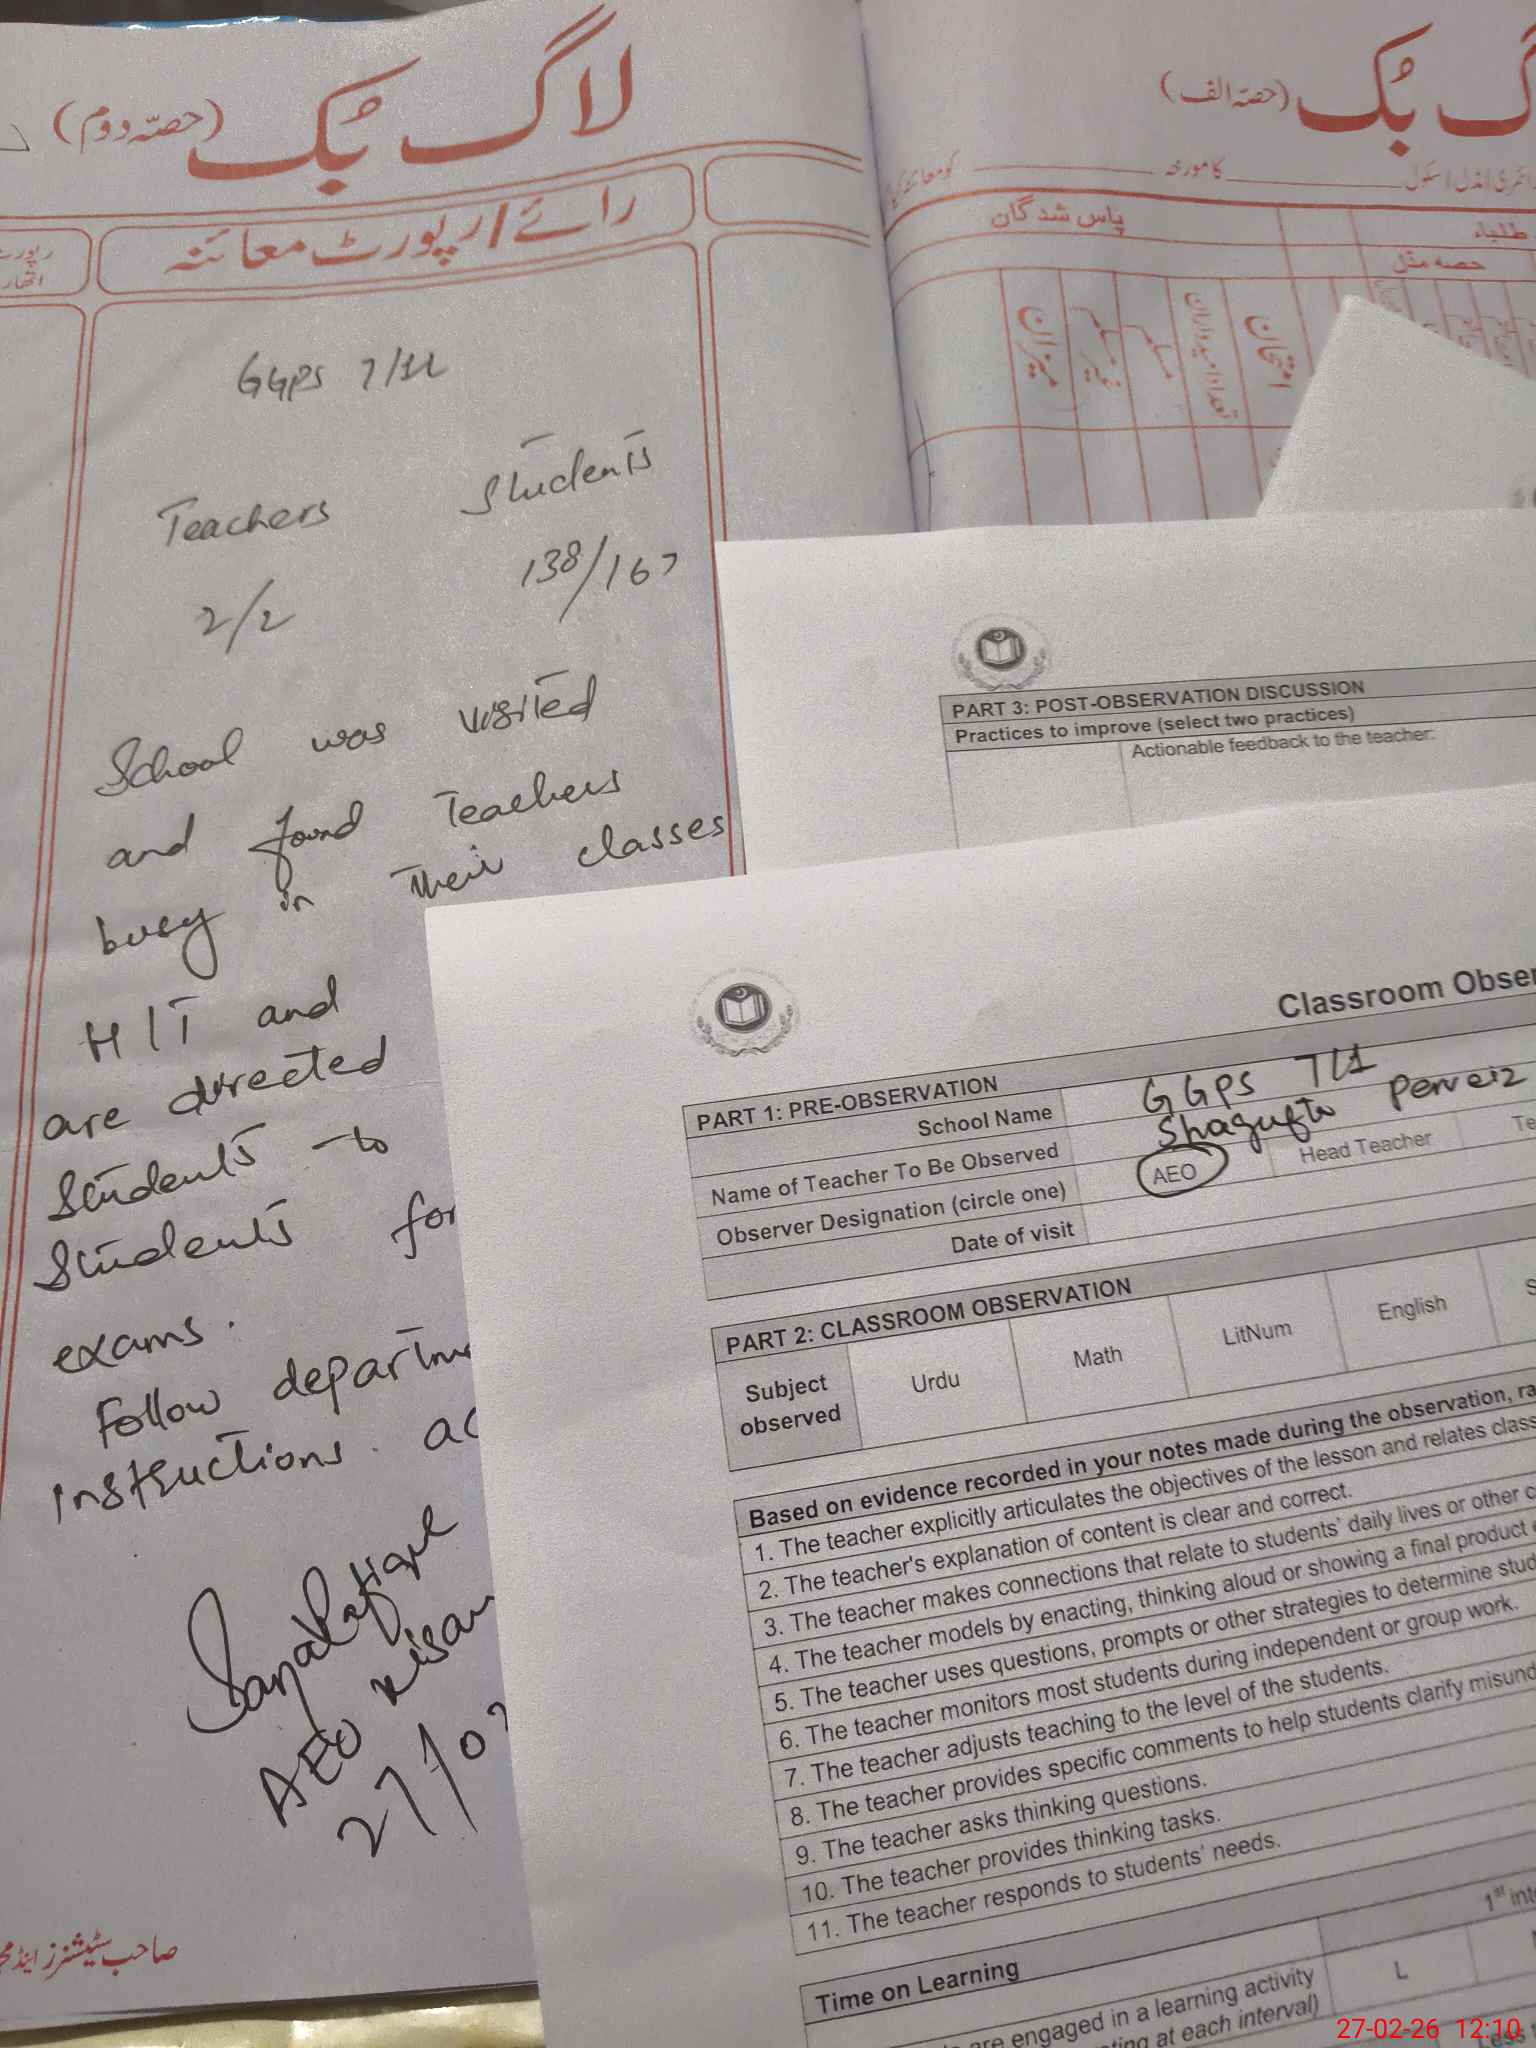 لاگ بُک (حصّہ دوم)
رائے / رپورٹ معائنہ
رپورٹ
GGPS 7/1L
Teachers Students
2/2 138/167
School was visited
and found Teachers
busy in their classes
HIT and
are directed
Students to
Students for
exams.
Follow departme
instructions. ac
AEO
27/02
صاحب سٹیشنرز اینڈ
گ بُک (حصّہ الف)
سکول کا مورخہ کو معائنہ کیا
طلباء پاس شدگان
حصہ مڈل
امتحان
تعداد امیدواران
مسلم
غیر مسلم
میزان
PART 3: POST-OBSERVATION DISCUSSION
Practices to improve (select two practices)
Actionable feedback to the teacher:
Classroom Obser
PART 1: PRE-OBSERVATION
School Name GGPS 7/L1
Name of Teacher To Be Observed Shagufta Perveiz
Observer Designation (circle one) AEO Head Teacher Te
Date of visit
PART 2: CLASSROOM OBSERVATION
Subject observed Urdu Math LitNum English S
Based on evidence recorded in your notes made during the observation, ra
1. The teacher explicitly articulates the objectives of the lesson and relates class
2. The teacher's explanation of content is clear and correct.
3. The teacher makes connections that relate to students' daily lives or other c
4. The teacher models by enacting, thinking aloud or showing a final product
5. The teacher uses questions, prompts or other strategies to determine stud
6. The teacher monitors most students during independent or group work.
7. The teacher adjusts teaching to the level of the students.
8. The teacher provides specific comments to help students clarify misund
9. The teacher asks thinking questions.
10. The teacher provides thinking tasks.
11. The teacher responds to students' needs.
Time on Learning 1st int
are engaged in a learning activity L
ting at each interval)
Less t
27-02-26 12:10